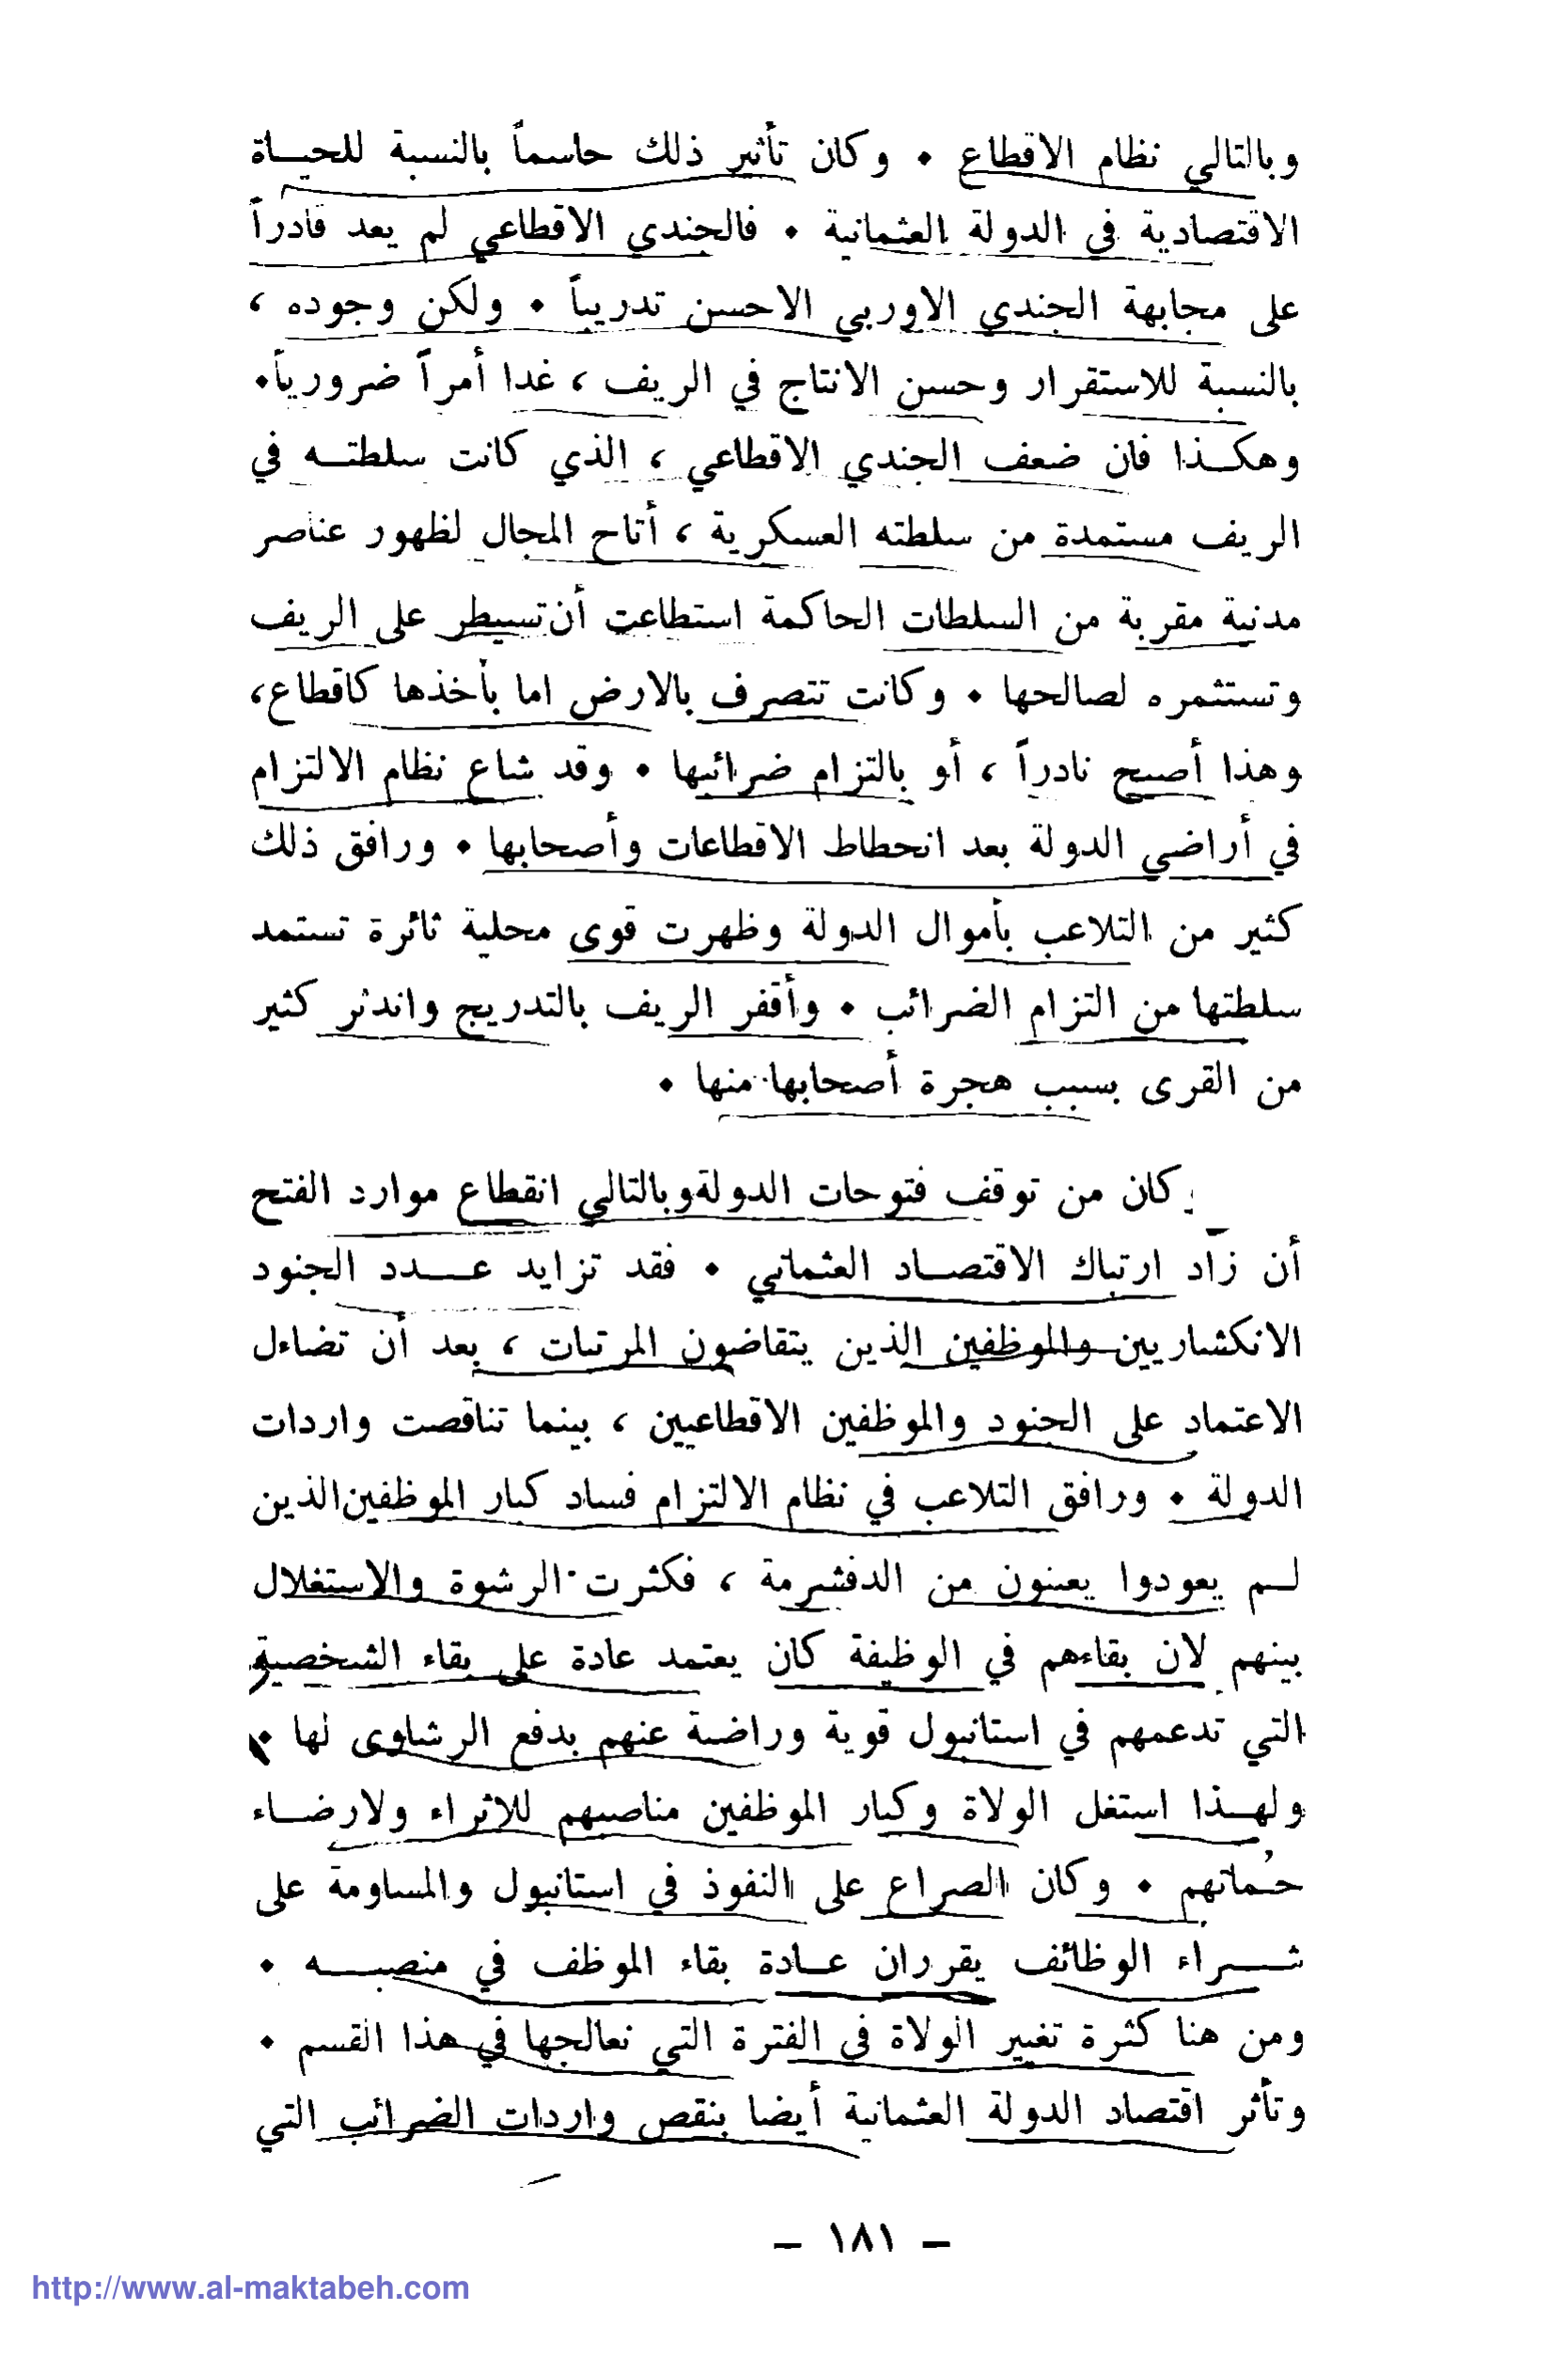 وبالتالي نظام الاقطاع ٠ وكان تأثير ذلك حاسماً بالنسبة للحيـــاة
الاقتصادية في الدولة العثمانية ٠ فالجندي الاقطاعي لم يعد قادراً
على مجابهة الجندي الاوربي الاحسن تدريباً ٠ ولكن وجوده ،
بالنسبة للاستقرار وحسن الانتاج في الريف ، غدا أمراً ضرورياً٠
وهكـــذا فان ضعف الجندي الاقطاعي ، الذي كانت سلطتـــه في
الريف مستمدة من سلطته العسكرية ، أتاح المجال لظهور عناصر
مدنية مقربة من السلطات الحاكمة استطاعت أن تسيطر على الريف
وتستثمره لصالحها ٠ وكانت تتصرف بالارض اما بأخذها كاقطاع،
وهذا أصبح نادراً ، أو بالتزام ضرائبها ٠ وقد شاع نظام الالتزام
في أراضي الدولة بعد انحطاط الاقطاعات وأصحابها ٠ ورافق ذلك
كثير من التلاعب بأموال الدولة وظهرت قوى محلية ثائرة تستمد
سلطتها من التزام الضرائب ٠ وأقفر الريف بالتدريج واندثر كثير
من القرى بسبب هجرة أصحابها منها ٠
وكان من توقف فتوحات الدولةوبالتالي انقطاع موارد الفتح
أن زاد ارتباك الاقتصـــاد العثماني ٠ فقد تزايد عـــدد الجنود
الانكشاريين والموظفين الذين يتقاضون المرتبات ، بعد أن تضاءل
الاعتماد على الجنود والموظفين الاقطاعيين ، بينما تناقصت واردات
الدولة ٠ ورافق التلاعب في نظام الالتزام فساد كبار الموظفين الذين
لـــم يعودوا يعينون من الدفشرمة ، فكثرت الرشوة والاستغلال
بينهم لان بقاءهم في الوظيفة كان يعتمد عادة على بقاء الشخصية
التي تدعمهم في استانبول قوية وراضية عنهم بدفع الرشاوى لها ٠
ولهـــذا استغل الولاة وكبار الموظفين مناصبهم للاثراء ولارضـــاء
حُماتهم ٠ وكان الصراع على النفوذ في استانبول والمساومة على
شـــراء الوظائف يقرران عـــادة بقاء الموظف في منصبـــه ٠
ومن هنا كثرة تغيير الولاة في الفترة التي نعالجها في هذا القسم ٠
وتأثر اقتصاد الدولة العثمانية أيضا بنقص واردات الضرائب التي
– ١٨١ –
http://www.al-maktabeh.com